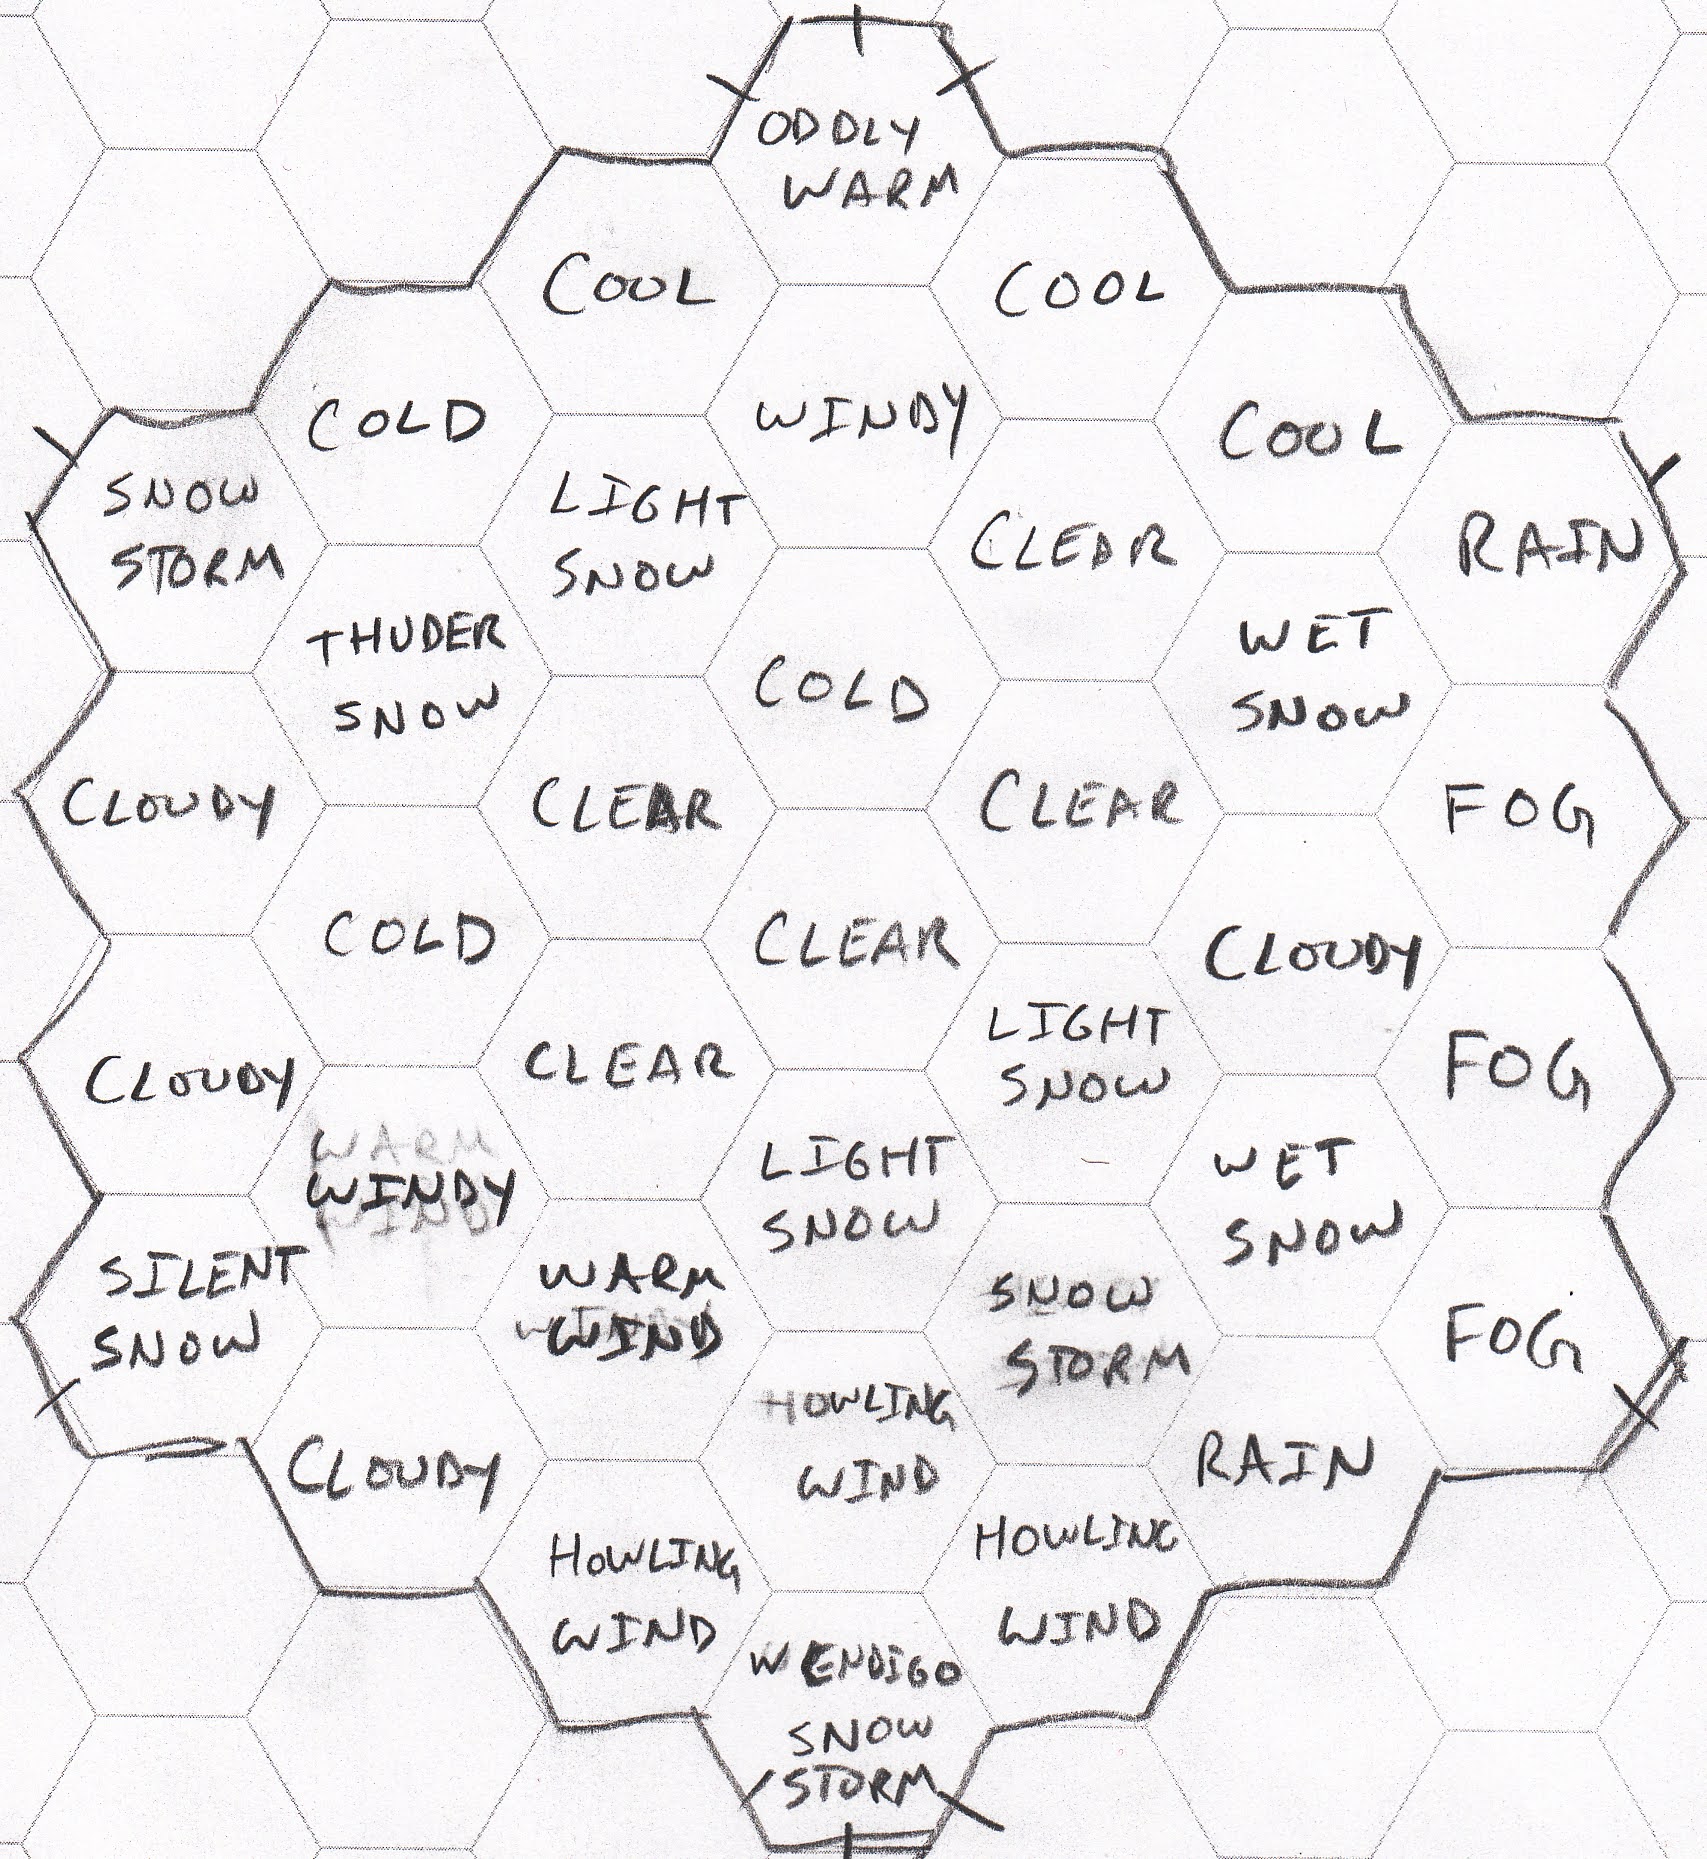 ODDLY
WARM
COOL
COOL
COLD
WINDY
COOL
SNOW
STORM
LIGHT
SNOW
CLEAR
RAIN
THUDER
SNOW
COLD
WET
SNOW
CLOUDY
CLEAR
CLEAR
FOG
COLD
CLEAR
CLOUDY
CLOUDY
CLEAR
LIGHT
SNOW
FOG
WARM
WINDY
WIND
LIGHT
SNOW
WET
SNOW
SILENT
SNOW
WARM
WIND
SNOW
STORM
FOG
CLOUDY
HOWLING
WIND
RAIN
HOWLING
WIND
HOWLING
WIND
WENDIGO
SNOW
STORM